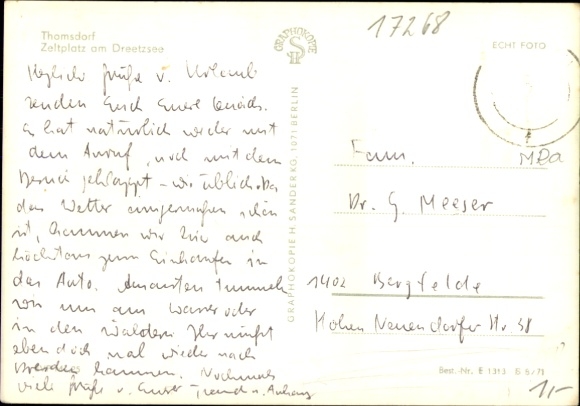 17268
Thomsdorf
Zeltplatz am Dreetzsee
GRAPHOKOPIE
HS
ECHT FOTO
Herzliche Grüße v. Urlaub
senden Euch Eure
Es hat natürlich weder mit
dem Anruf, noch mit dem
Besuch geklappt - wie üblich. Da
das Wetter einigermaßen schön
ist, kommen wir hier auch
höchstens zum Einkaufen in
das Auto. Ansonsten tummeln
wir uns am Wasser oder
in den Wäldern. Ihr müßt
eben doch mal wieder nach
kommen. Nochmals
viele Grüße v. Eurer u. Anhang
GRAPHOKOPIE H. SANDER KG, 1071 BERLIN
Fam.
Dr. G. Meeser
1402 Bergfelde
Hohen Neuendorfer Str. 38
Best.-Nr. E 1313 G 5/71
1,-